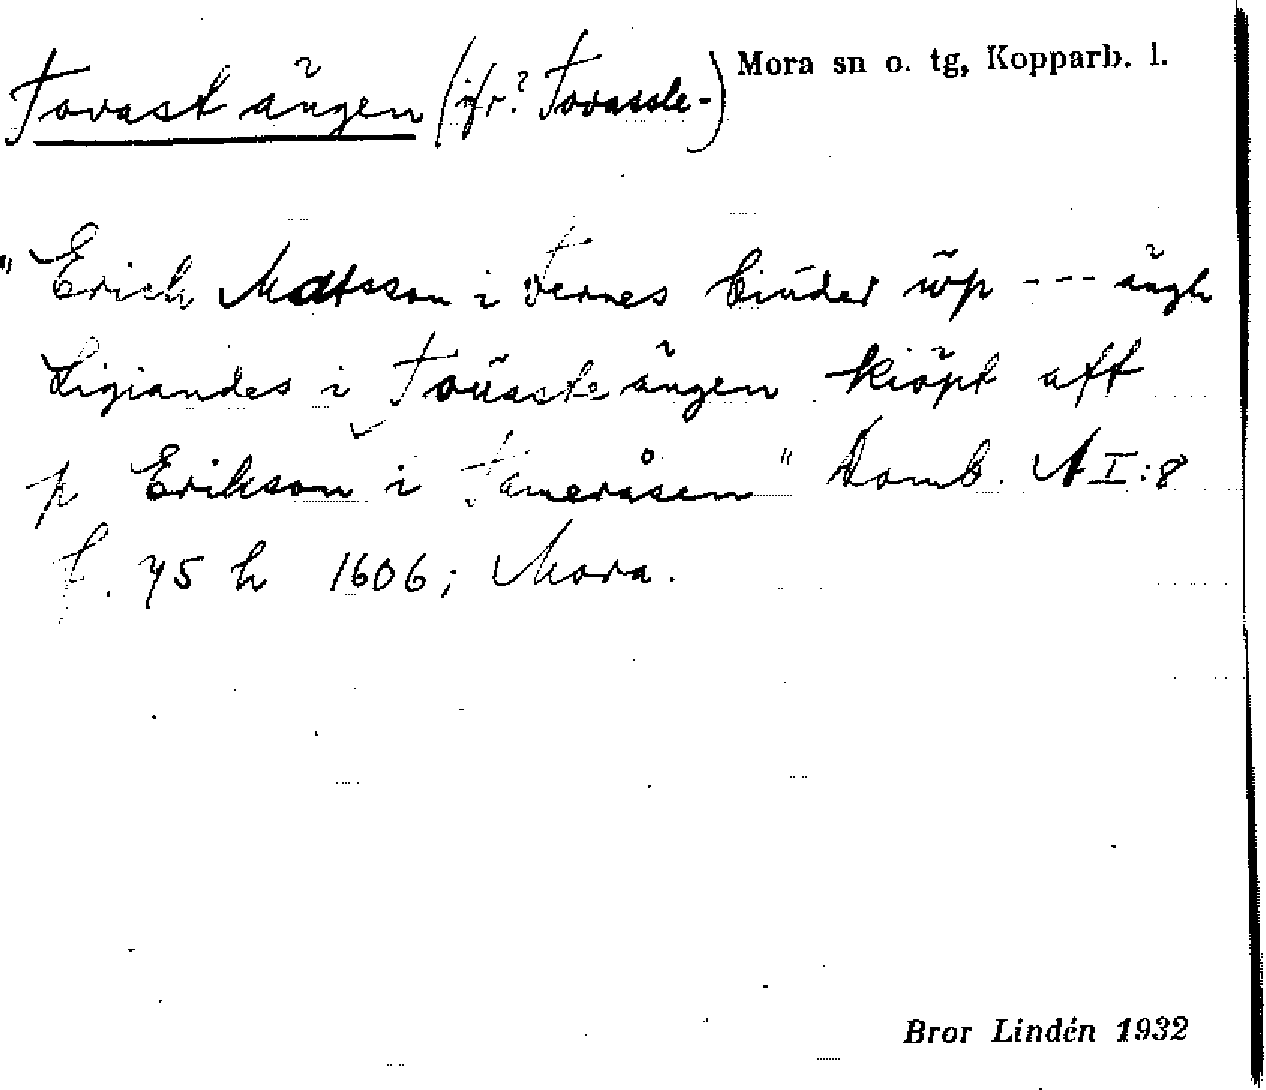 Tovast ängen (jfr? Tovassle-) Mora sn o. tg, Kopparb. l.
"Erich Matsson i Vernes biuder wp --- ängh
Ligiandes i Toüaste ängen kiöpt aff
p Erikson i Fämeråsen" Domb. A I:8
f. 75 h 1606; Mora.
Bror Lindén 1932